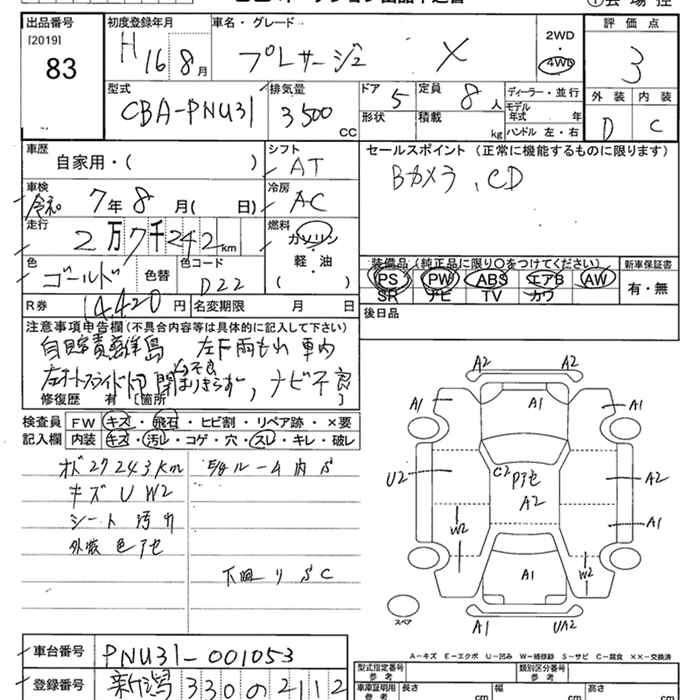 出品番号
[2019]
83
初度登録年月
H 16 8 月
車名・グレード
プレサージュ X
2WD
・
4WD
評価点
3
外装 内装
D C
型式
CBA-PNU31
排気量
3500 CC
ドア 5
定員 8 人
ディーラー・並行
モデル年式 年
形状
積載 kg
ハンドル 左・右
車歴
自家用・( )
シフト
AT
セールスポイント (正常に機能するものに限ります)
Bカメラ、CD
車検
令和 7年 8月( 日)
冷房
AC
走行
2万7千242km
燃料
ガソリン
軽・油
( )
色
ゴールド
色替
色コード
D22
装備品 (純正品に限り○をつけてください)
PS PW ABS エアB AW
SR ナビ TV カワ
新車保証書
有・無
R券 14,420 円
名変期限 月 日
後日品
注意事項申告欄(不具合内容等は具体的に記入して下さい)
左下雨もれ 車内
閉まりきらず, ナビ不良
修復歴 有 [箇所
検査員記入欄
FW キズ・飛石・ヒビ割・リペア跡・×要
内装 キズ・汚れ・コゲ・穴・スレ・キレ・破レ
オド27243km
キズ U W2
シート 汚れ
外装 色アセ
下廻り SC
A2 A2
A1 A1 A1
U2 C2 Pアセ A2
A2
W2 A1
W2
A1
スペア
A1 UA2
A-キズ E-エクボ U-凹み W-補修跡 S-サビ C-腐食 ××-交換済
車台番号
PNU31-001053
登録番号
新潟 330 の 2112
型式指定番号
参考
類別区分番号
参考
車庫証明用
参考
長さ cm
幅 cm
高さ cm